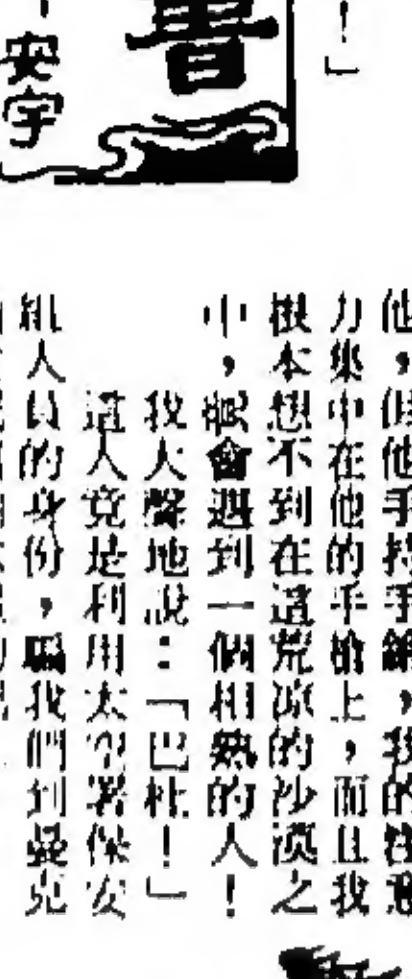 ！」
書
安宇
他，但他手持手鎗，我的注意
力集中在他的手槍上，而且我
根本想不到在這荒凉的沙漠之
中，眼會遇到一個相熟的人！
我大聲地說：「巴杜！」
這人竟是利用太空署保安
組人員的身份，騙我們到曼克